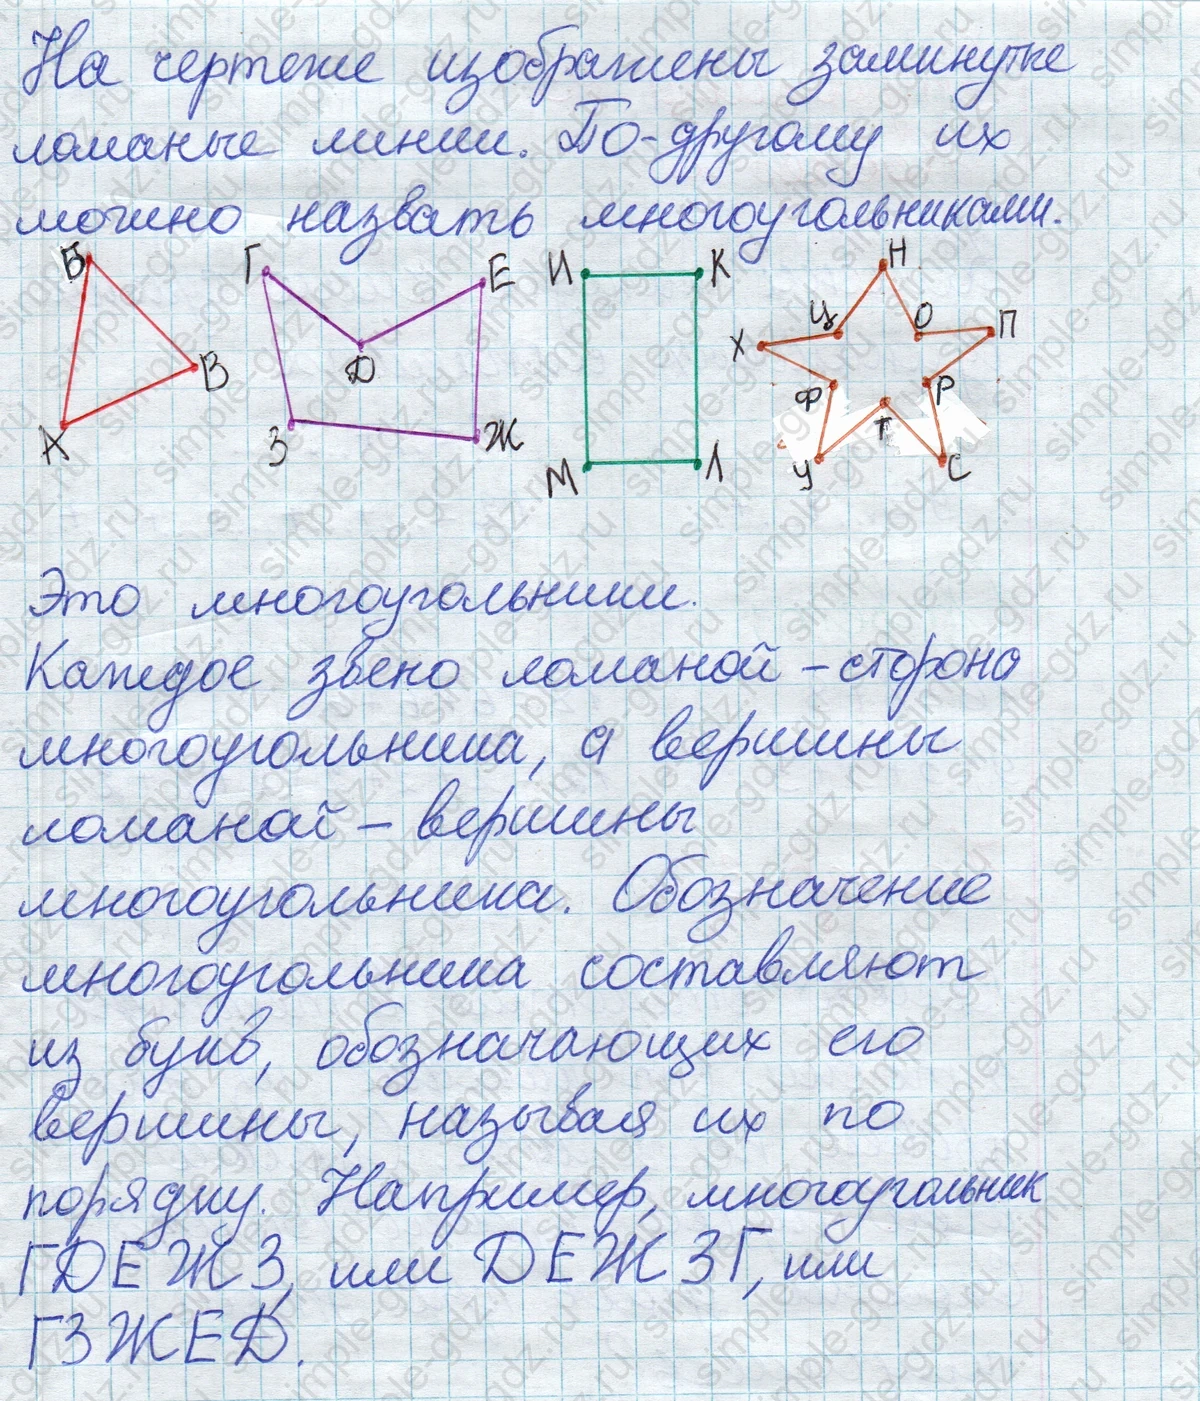 На чертеже изображены замкнутые
ломаные линии. По-другому их
можно назвать многоугольниками.
Б Г Е И К Н
Ц О П
Х
В Д Ф Р
А З Ж М Л У Т С
Это многоугольники.
Каждое звено ломаной – сторона
многоугольника, а вершины
ломаной – вершины
многоугольника. Обозначение
многоугольника составляют
из букв, обозначающих его
вершины, называя их по
порядку. Например, многоугольник
ГДЕЖЗ, или ДЕЖЗГ, или
ГЗЖЕД.
simple-gdz.ru